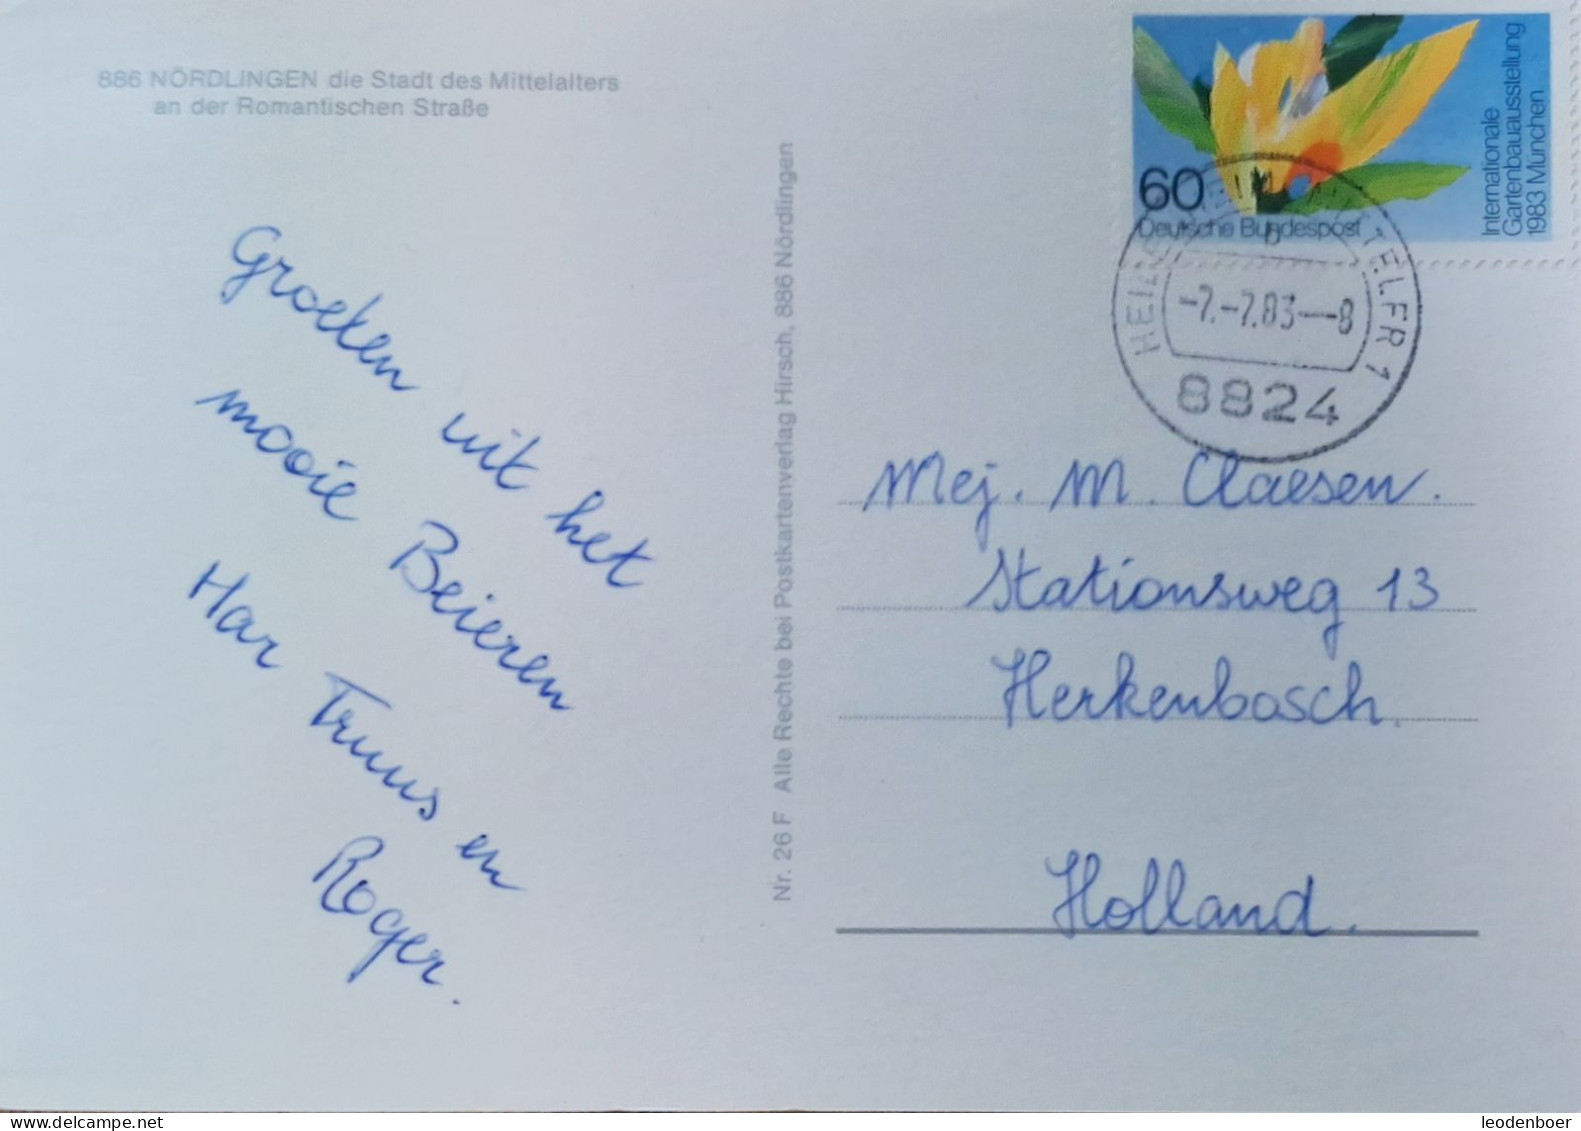 886 NÖRDLINGEN die Stadt des Mittelalters
an der Romantischen Straße
Groeten uit het
mooie Beieren
Har Truus en
Roger.
Nr. 26 F Alle Rechte bei Postkartenverlag Hirsch, 886 Nördlingen
60
Deutsche Bundespost
Internationale
Gartenbauausstellung
1983 München
MITTELFR 1
-7.-7.83--8
8824
Mej. M. Claesen.
Stationsweg 13
Herkenbosch.
Holland.
leodenboer